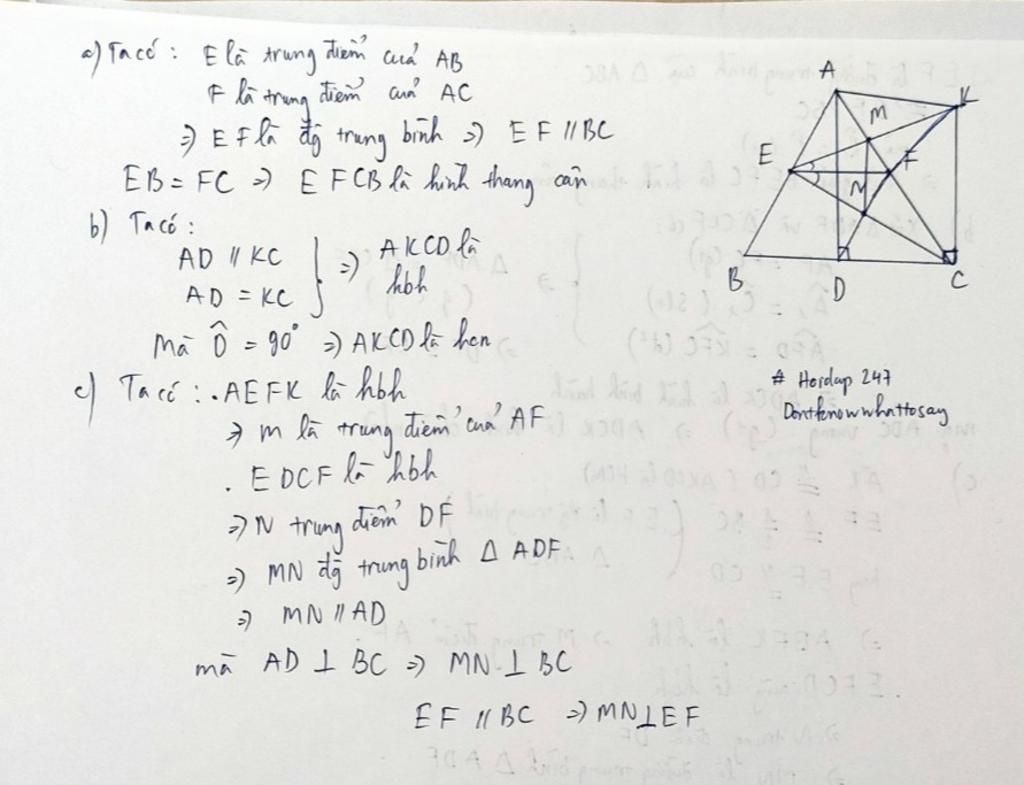 a) Ta có : E là trung điểm của AB
F là trung điểm của AC
=> EF là đg trung bình => EF // BC
EB = FC => EFCB là hình thang cân
b) Ta có :
AD // KC
AD = KC
} => AKCD là
hbh
Mà D̂ = 90° => AKCD là hcn
c) Ta có : . AEFK là hbh
=> M là trung điểm của AF
. EDCF là hbh
=> N trung điểm DF
=> MN đg trung bình Δ ADF
=> MN // AD
mà AD ⊥ BC => MN ⊥ BC
EF // BC => MN ⊥ EF
A
K
M
E
F
N
B
D
C
# Hoidap 247
Dontknowwhattosay